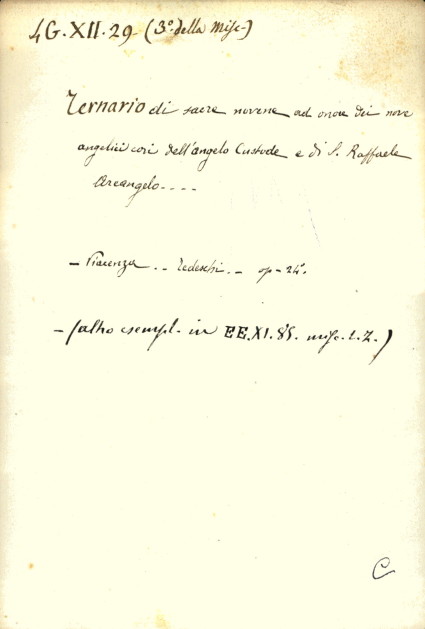 4G.XII.29 - (3º. della Misc-)
Ternario di sacre novene ad onore dei nove
angelici cori dell'angelo Custode e di S. Raffaele
Arcangelo - - - -
- Piacenza . - Tedeschi . - op - 24º.
- (altro esempl - in EE.XI.85. misc. t. 7. )
C